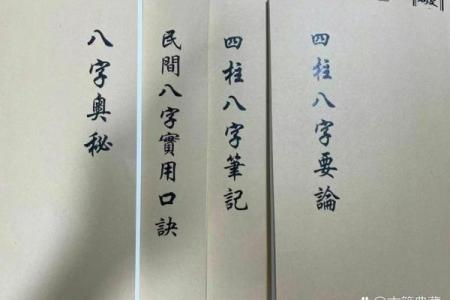 四柱八字要論
四柱八字筆記
民間八字實用口訣
八字奧秘